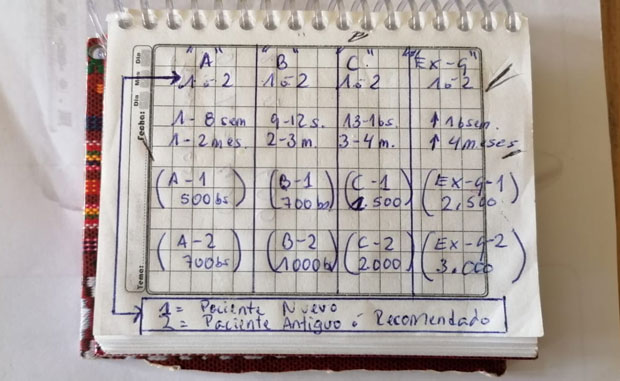 Fecha: Dia Mes Dia
"A" "B" "C" "Ex-G"
1 ó 2 1 ó 2 1 ó 2 1 ó 2
1-8 sem 9-12 s. 13-16 s. ↑ 16 sem.
1-2 mes. 2-3 m. 3-4 m. ↑ 4 meses
(A-1 (B-1 (C-1 (Ex-G-1
500bs) 700bs) 1.500) 2.500)
(A-2 (B-2 (C-2 (Ex-G-2
700bs) 1000bs) 2000) 3.000)
Tema:
1 = Paciente Nuevo
2 = Paciente Antiguo ó Recomendado